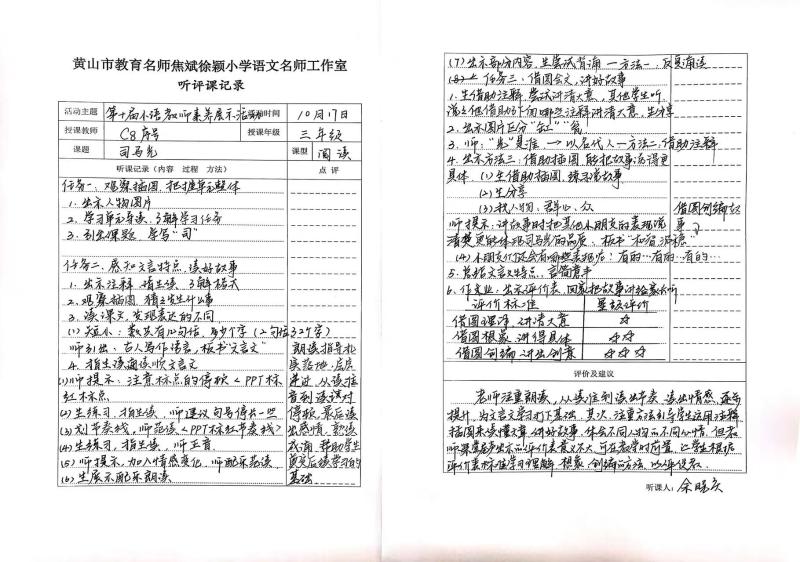 黄山市教育名师焦斌徐颖小学语文名师工作室
听评课记录
活动主题 第十届小语教师素养展示活动 活动时间 10月17日
授课教师 C8序号 授课年级 三年级
课题 司马光 课型 阅读
听课记录（内容 过程 方法） 点评
任务一：观察插图，把握单元整体
1. 出示人物图片
2. 学习单元导读，了解学习任务
3. 引出课题，学写“司”
任务二：感知文言特点，读好故事
1. 出示注释，指生读，了解格式
2. 观察插图，猜立发生什么事
3. 读课文，发现表达的不同
(1) 短小：数数有几句话，多少个字（2句话32个字）
师引出：古人写作语言，板书“文言文”
4. 指生读通读顺文言文
(1) 师提示：注意标点的停顿<PPT标
红标点>
(2) 生练习，指生读，师建议句号停长一些
(3) 划节奏线，师范读<PPT标红节奏线>
(4) 生练习，指生读，师正音
(5) 师提示，加入情感变化，师配乐范读
(6) 生展示配乐朗读
朗读指导扎
实落地，层层
递进，从读准
音到读好
停顿，最后读
出感情，熟读
成诵，帮助学生
奠定后续学习的
基础
(7) 出示部分内容，生尝试背诵 — 方法一：反复诵读
任务三：借图会文，讲好故事
1. 生借助注释，尝试讲清大意，其他学生听，
说立他借助了哪些注释讲清大意，生分享
2. 出示图片区分“缸”“瓮”
3. 师：“光”是谁 → 以名代人 — 方法二：借助注释
4. 出示方法三：借助插图，能把故事说得更
具体 (1) 生借助插图，练习说故事
(2) 生分享
(3) 找人物，群心、众
借图创编故
事
师提示：讲故事时把其他小朋友的表现说
清楚更能体现司马光的品质，板书“机智沉稳”
(4) 小朋友们还会有哪些表现呢：有的…有的…有的…
5. 总结文言文特点，言简意丰
6. 作业：出示评价表，回家把故事讲给家长听
评价标准 星级评价
借图理序，讲清大意 ☆
借图想象，讲得具体 ☆☆
借图创编，讲出创意 ☆☆
评价及建议
老师注重朗读，从读准到读出节奏，读出情感，逐步
提升，为文言文学习打下基础。其次，注重方法引导学生运用注释
插图来读懂文章，讲好故事，体会不同人物的不同心情。但老
师课尾出示的评价表意义不大，可在教学时前置，让学生根据
评价表标准学习理解、想象、创编的方法，以评促教
听课人：余晓庆